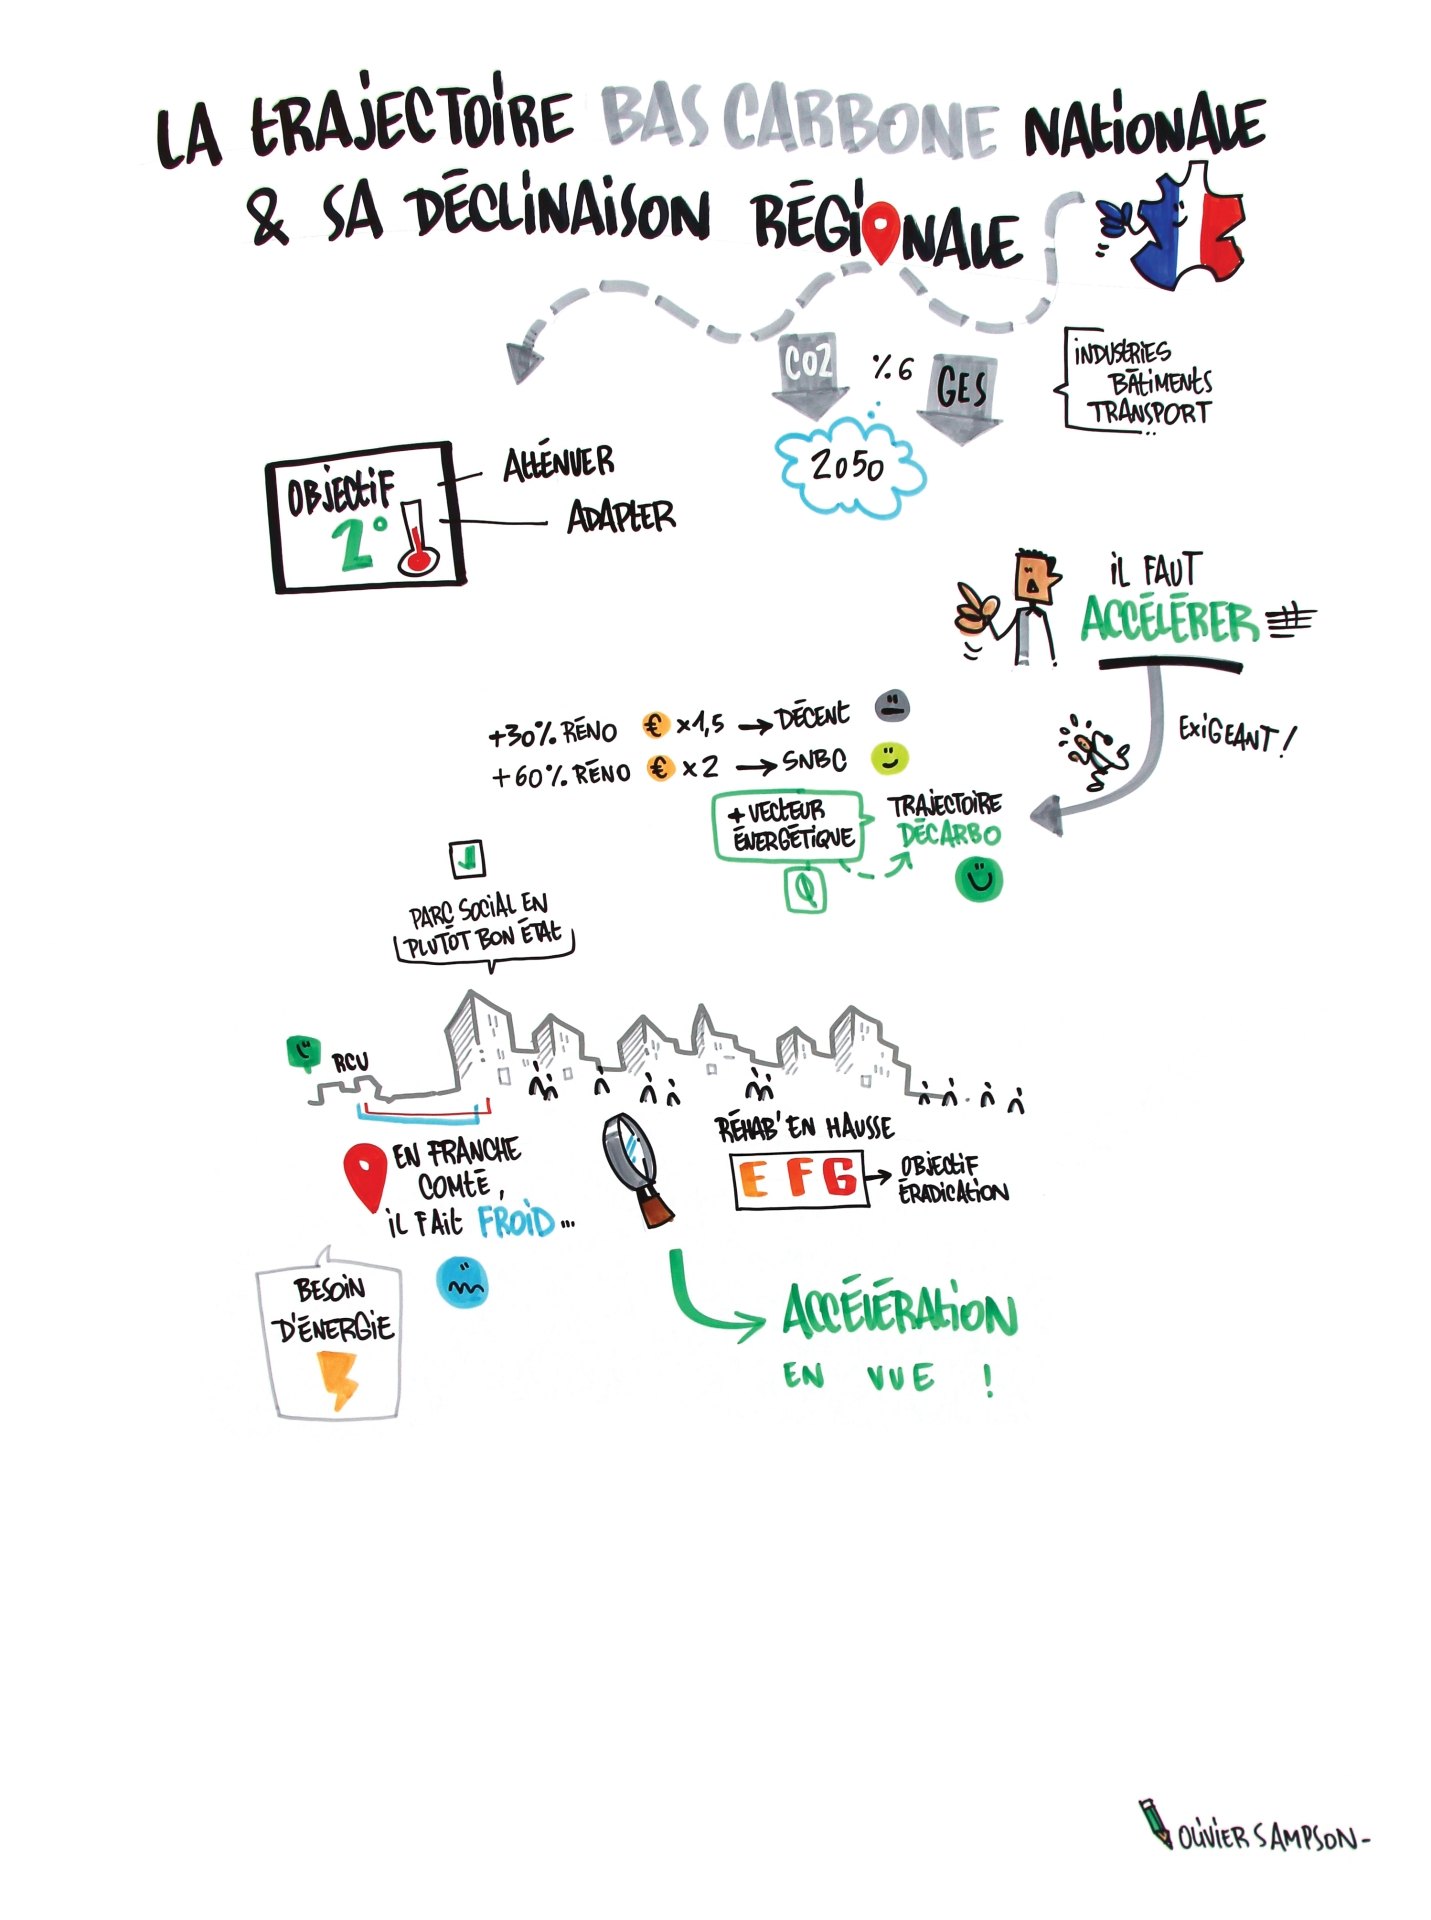 LA TRAJECTOIRE BAS CARBONE NATIONALE
& SA DÉCLINAISON RÉGIONALE
CO2 %6 GES
2050
INDUSTRIES
BÂTIMENTS
TRANSPORT
...
OBJECTIF
2°
ATTÉNUER
ADAPTER
IL FAUT
ACCÉLÉRER
EXIGEANT !
+30% RÉNO € x1,5 → DÉCENT
+60% RÉNO € x2 → SNBC
+ VECTEUR
ÉNERGÉTIQUE
TRAJECTOIRE
DÉCARBO
PARC SOCIAL EN
PLUTÔT BON ÉTAT
RCU
EN FRANCHE
COMTÉ,
IL FAIT FROID...
RÉHAB' EN HAUSSE
E F G → OBJECTIF
ÉRADICATION
BESOIN
D'ÉNERGIE
ACCÉLÉRATION
EN VUE !
OLIVIER SAMPSON-